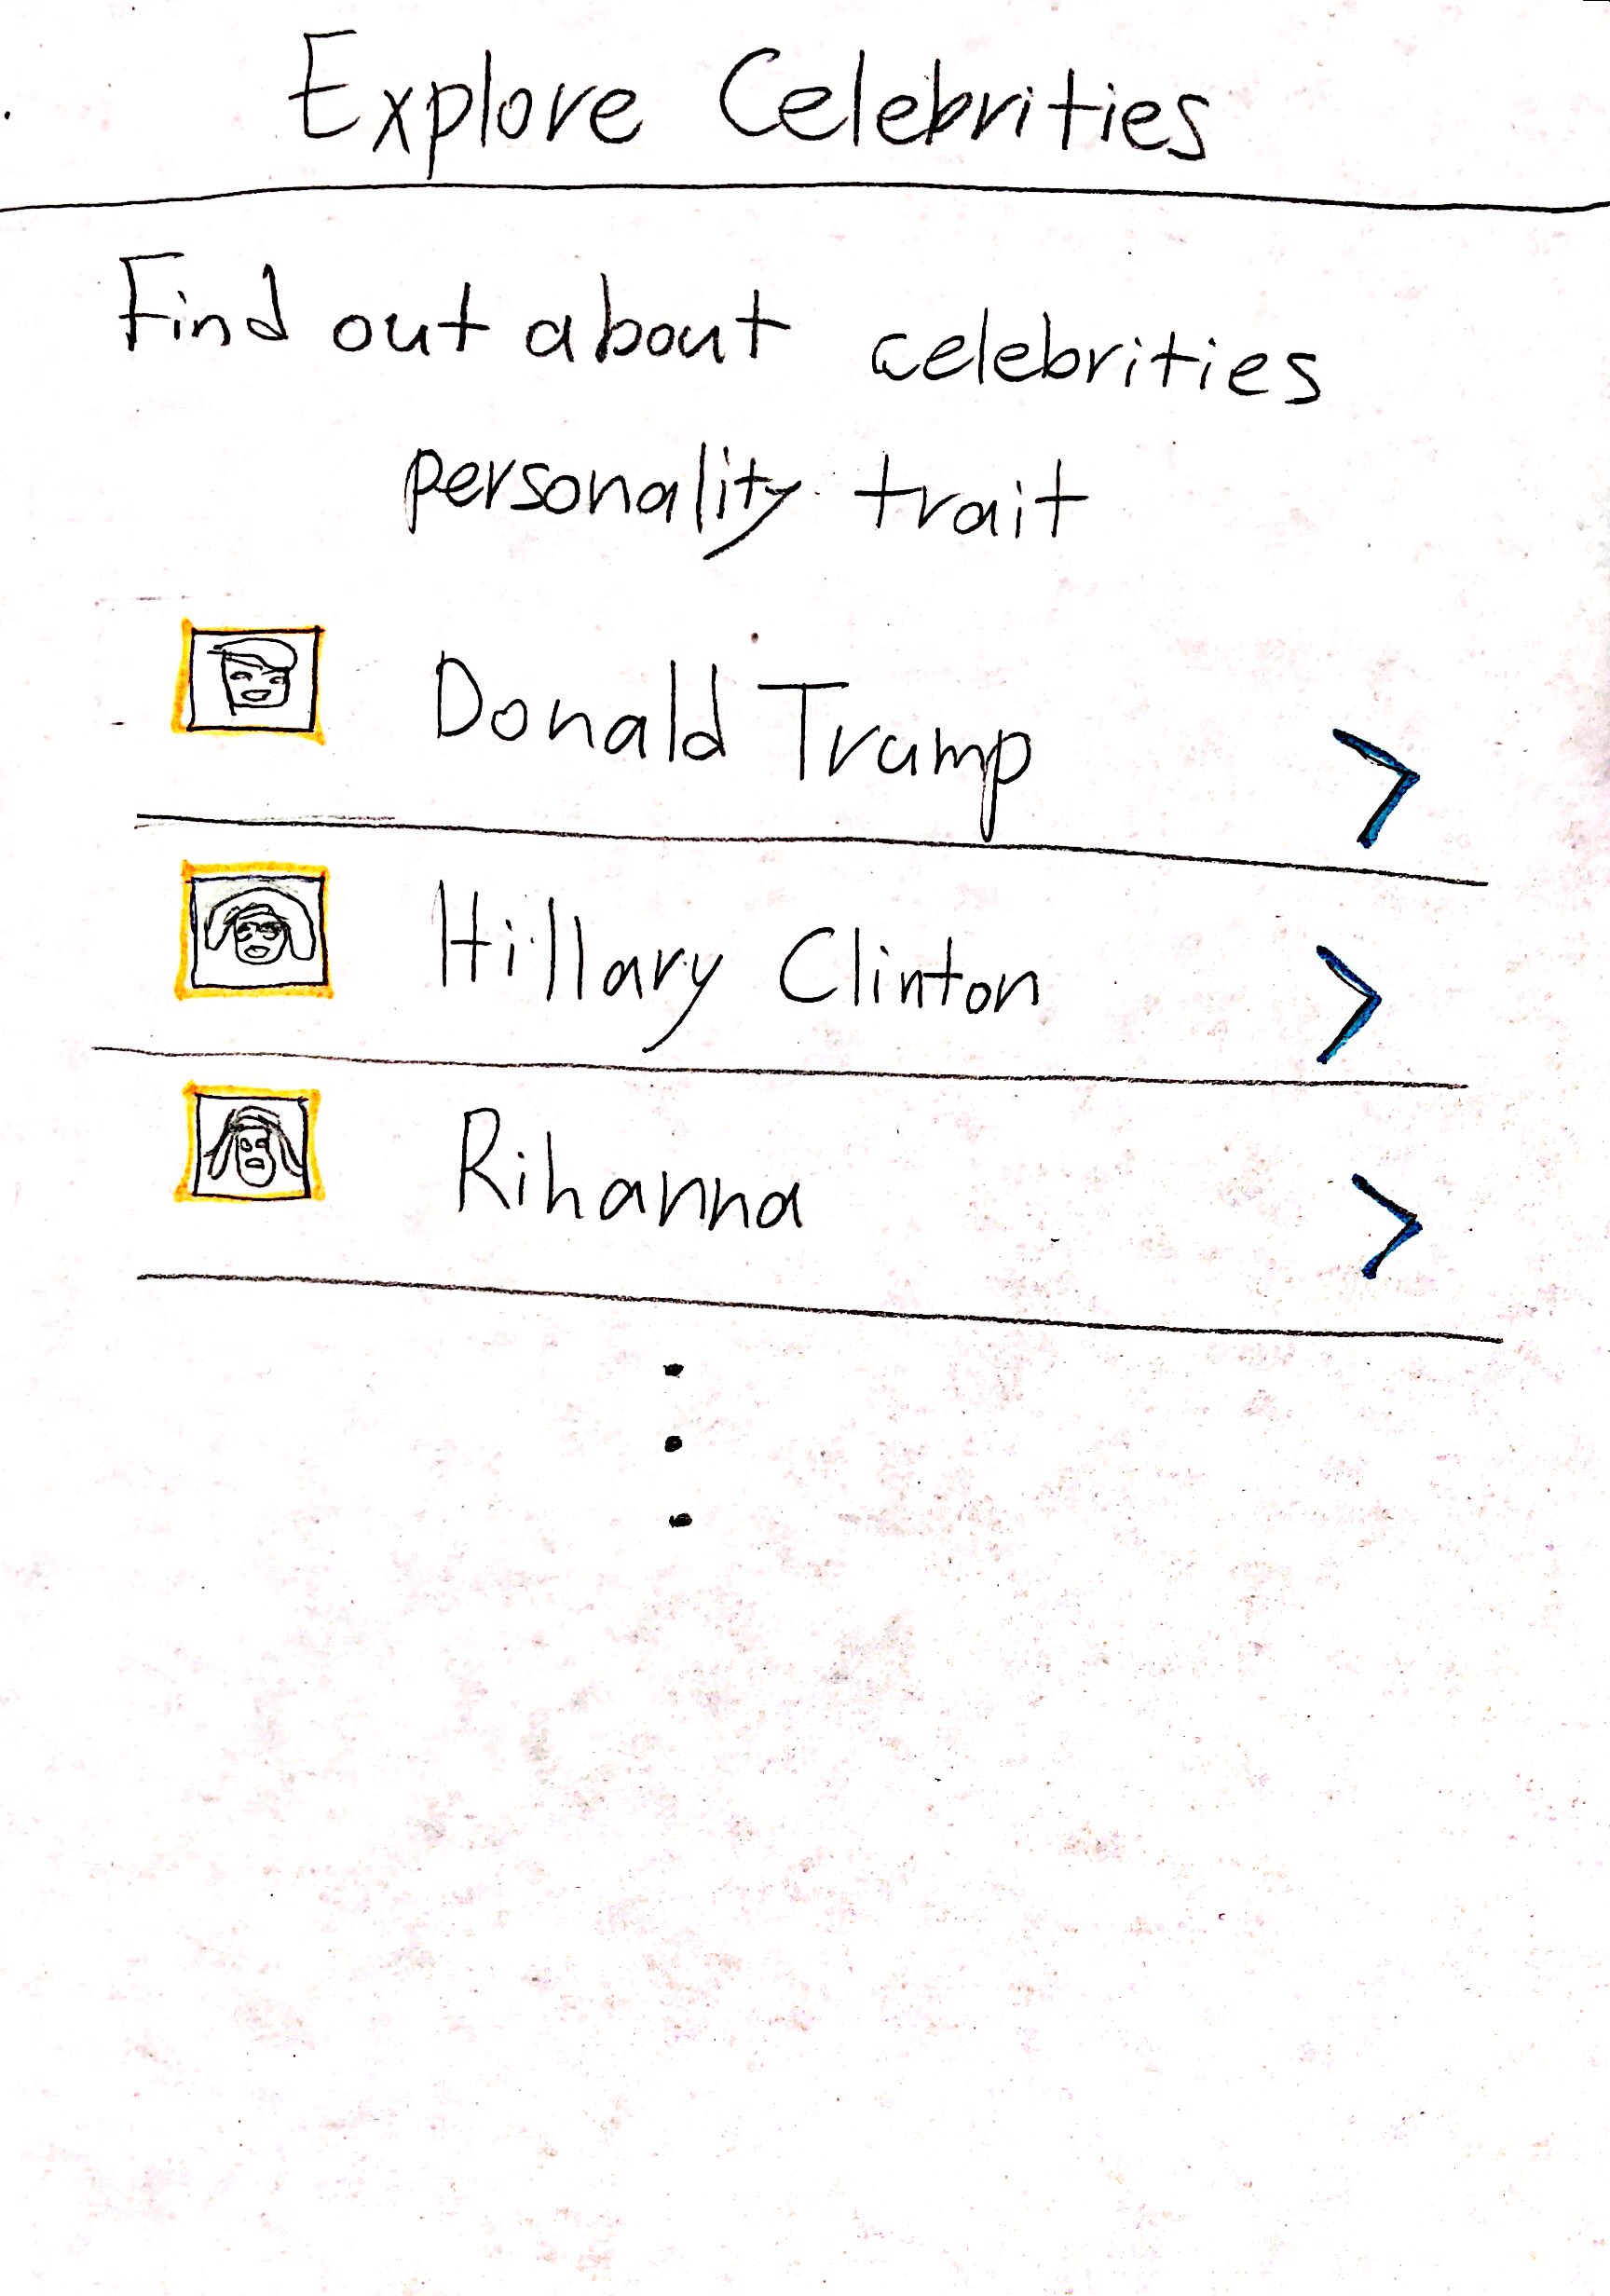 Explore Celebrities
Find out about celebrities
personality trait
Donald Trump
Hillary Clinton
Rihanna